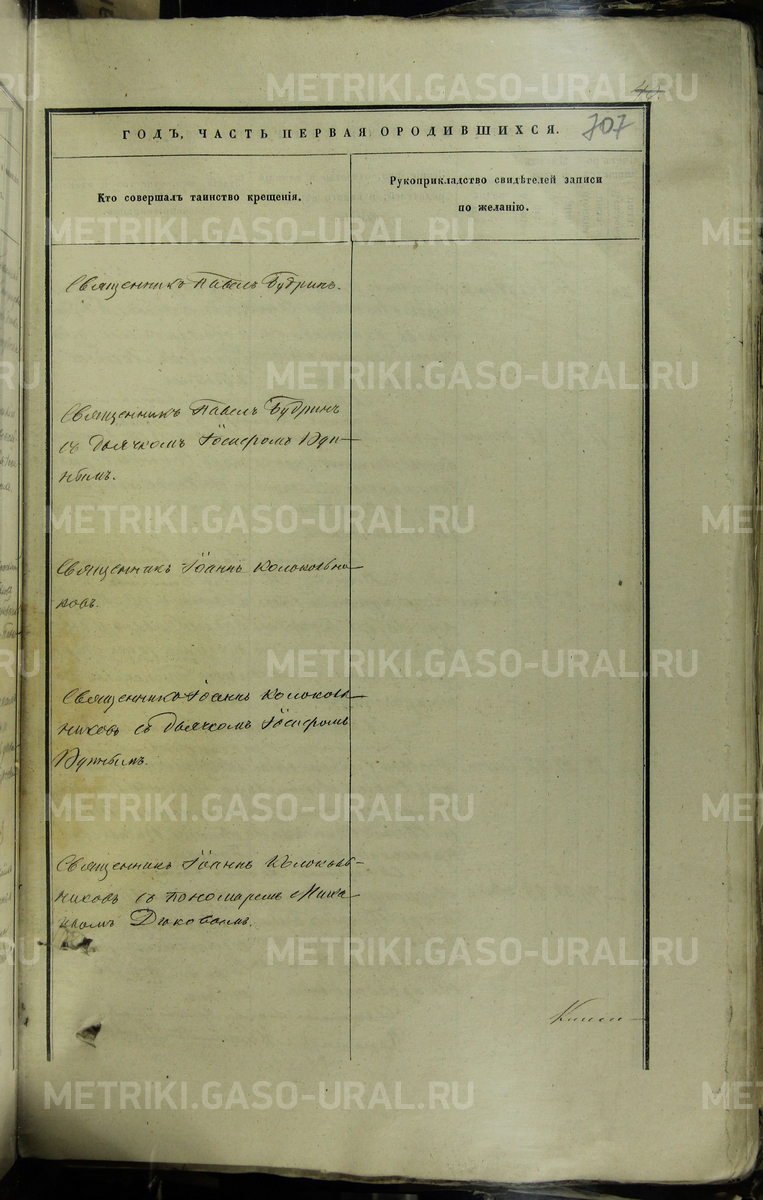 707
ГОДЪ, ЧАСТЬ ПЕРВАЯ О РОДИВШИХСЯ.
Кто совершалъ таинство крещенія.
Рукоприкладство свидѣтелей записи
по желанію.
Священникъ Павелъ Будринъ.
Священникъ Павелъ Будринъ
съ Дьячкомъ Іосифомъ
Священникъ Іоаннъ Колокольни
ковъ.
Священникъ Іоаннъ Колоколь
никовъ съ Дьячкомъ Іосифомъ
Священникъ Іоаннъ Колоколь-
никовъ съ Пономаремъ Миха
иломъ Дюковымъ.
METRIKI.GASO-URAL.RU